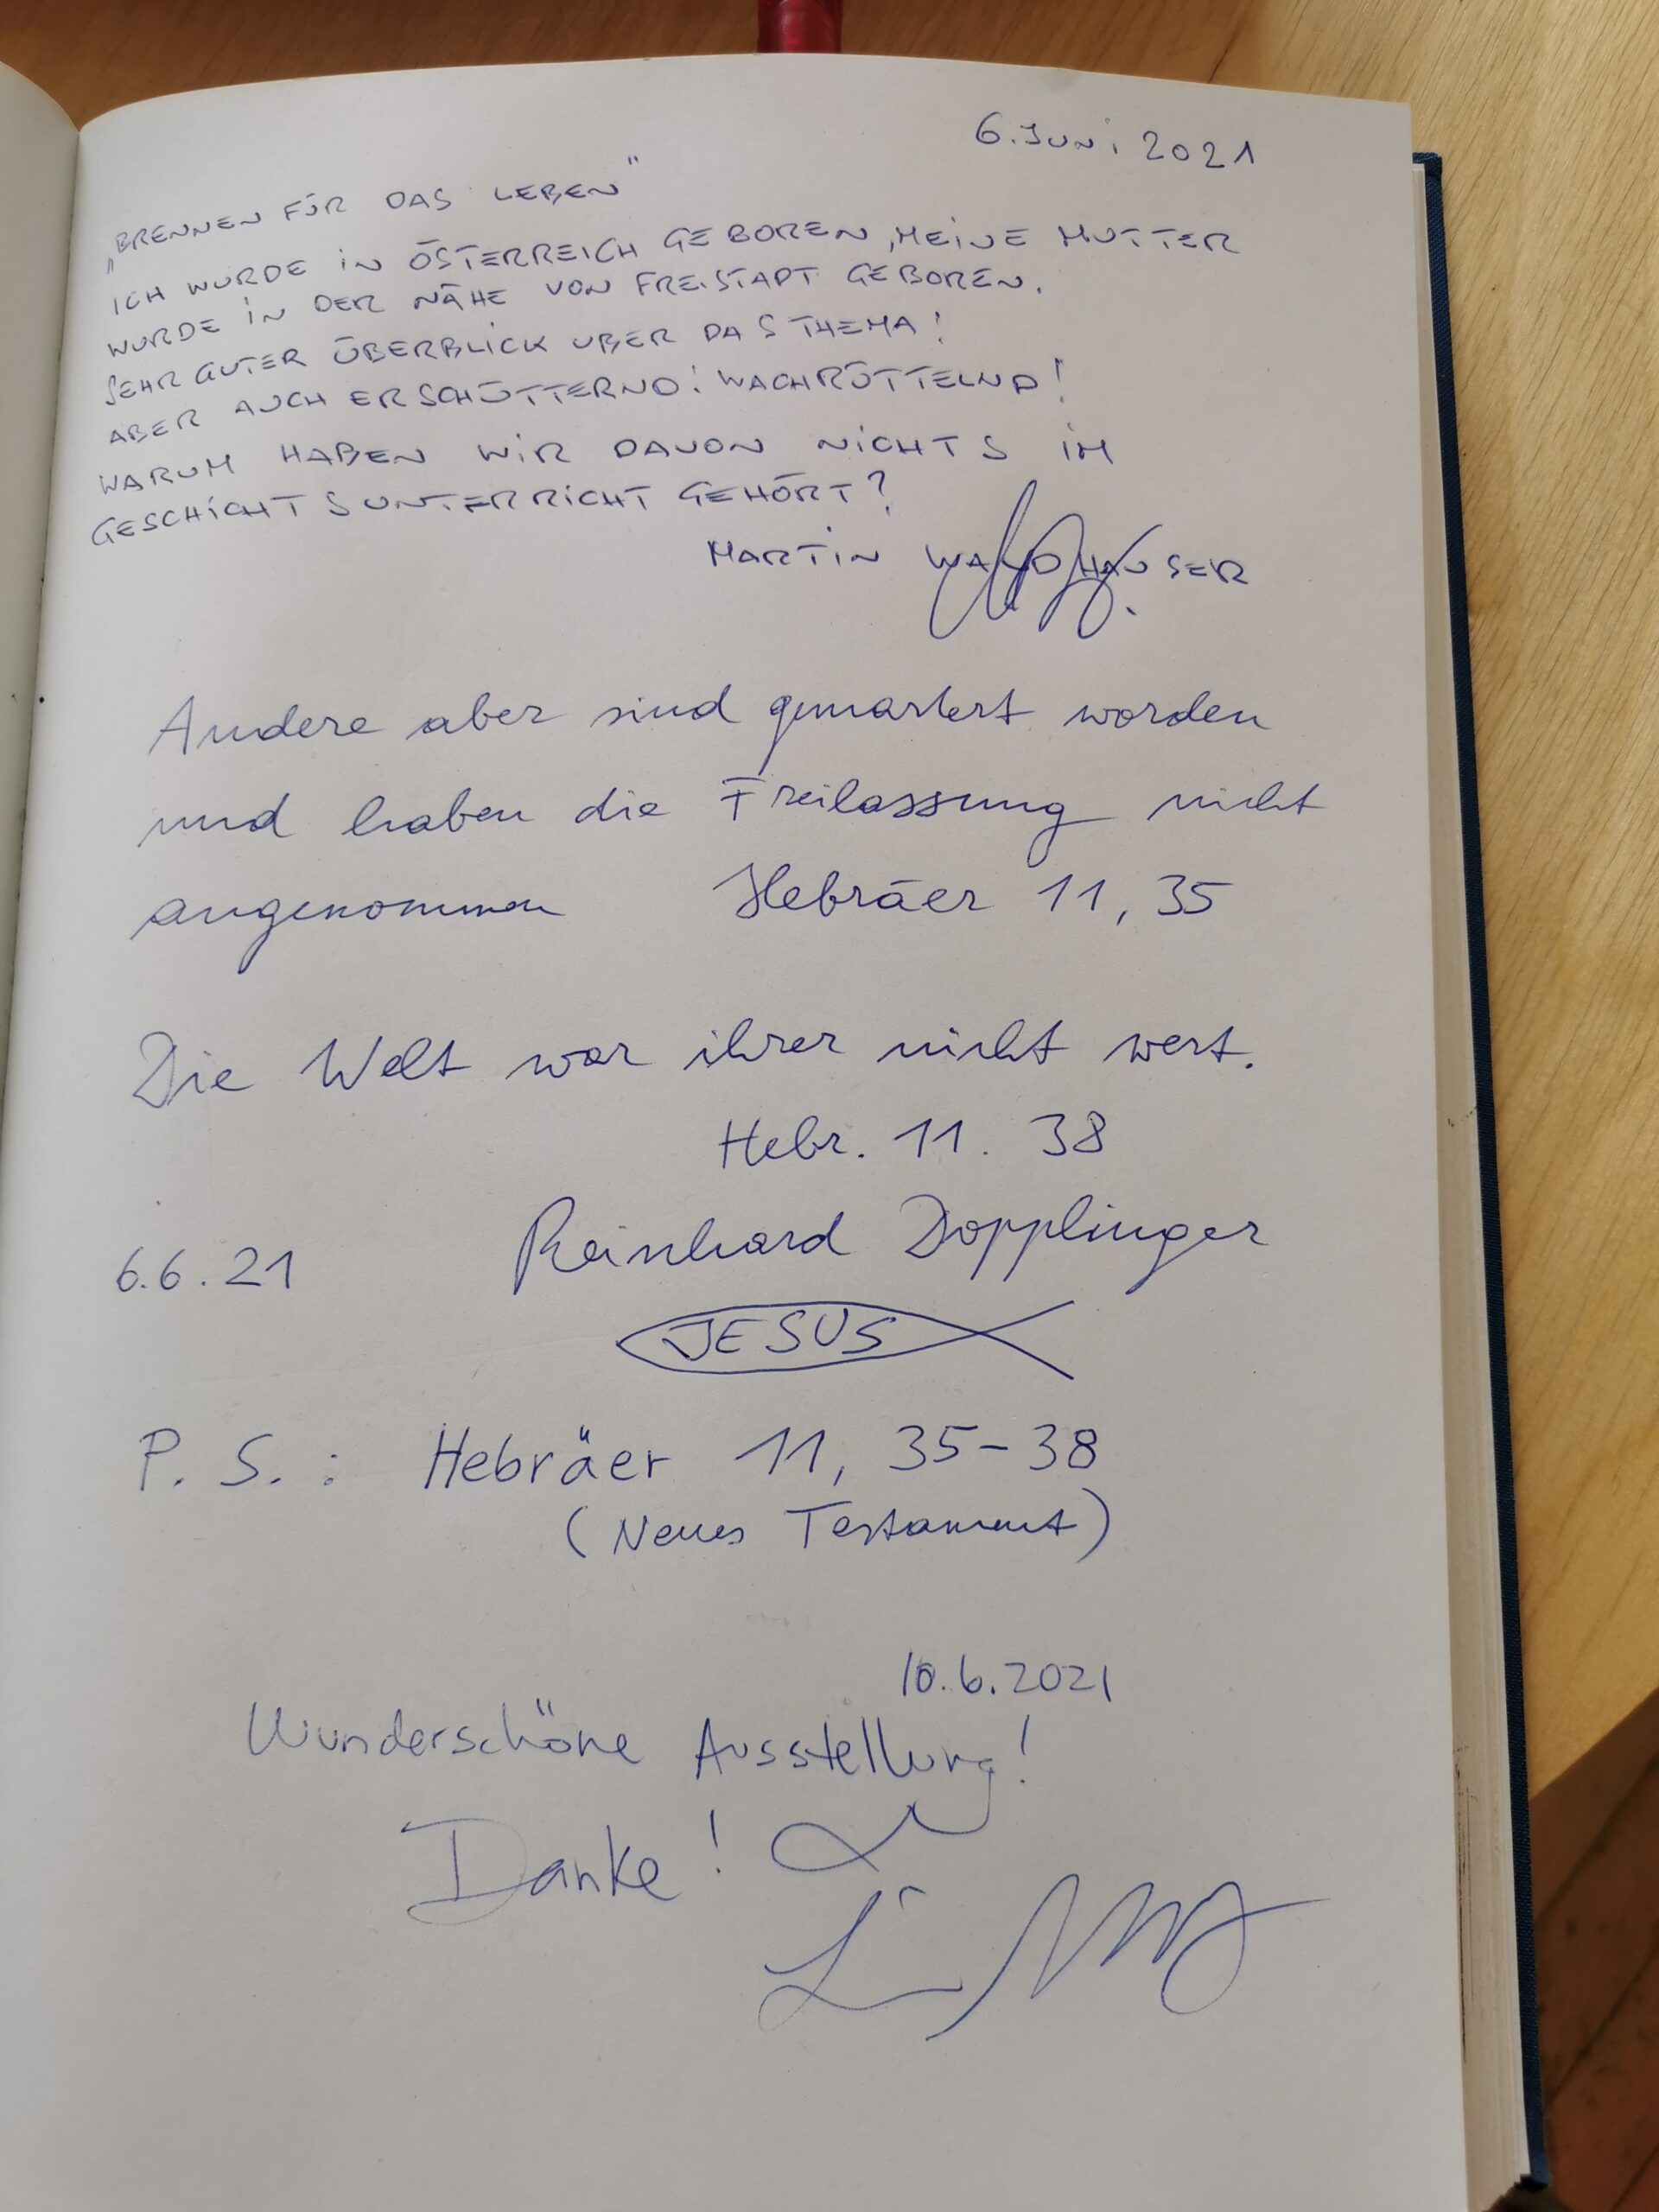 6. JUNI 2021
„BRENNEN FÜR DAS LEBEN"
ICH WURDE IN ÖSTERREICH GEBOREN, MEINE MUTTER
WURDE IN DER NÄHE VON FREISTADT GEBOREN.
SEHR GUTER ÜBERBLICK UBER DAS THEMA!
ABER AUCH ERSCHÜTTERND! WACHRÜTTELND!
WARUM HABEN WIR DAVON NICHTS IM
GESCHICHTSUNTERRICHT GEHÖRT?
MARTIN WALDHAUSER
Andere aber sind gemartert worden
und haben die Freilassung nicht
angenommen Hebräer 11, 35
Die Welt war ihrer nicht wert.
Hebr. 11. 38
6.6.21 Reinhard Dopplinger
JESUS
P. S.: Hebräer 11, 35-38
(Neues Testament)
10.6.2021
Wunderschöne Ausstellung!
Danke!